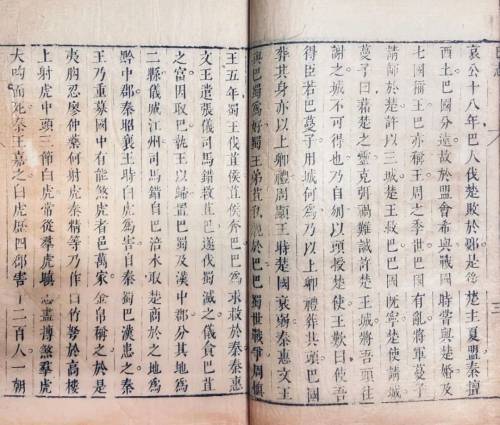 哀公十八年巴人伐楚敗於鄾是後楚主夏盟秦擅
西土巴國分遠故於盟會希與戰國時嘗與楚婚及
七國稱王巴亦稱王周之季世巴國有亂將軍蔓子
請師於楚許以三城楚王救巴巴國既寧楚使請城
蔓子曰藉楚之靈克弭禍難誠許楚王城將吾頭往
謝之城不可得也乃自刎以頭授楚使王歎曰使吾
得臣若巴蔓子用城何為乃以上卿禮葬其頭巴國
葬其身亦以上卿禮周顯王時楚國衰弱秦惠文王
與巴蜀為好蜀王弟苴私親於巴巴蜀世戰爭周慎
王五年蜀王伐苴侯苴侯奔巴巴為求救於秦秦惠
文王遣張儀司馬錯救苴巴遂伐蜀滅之儀貪巴苴
之富因取巴執王以歸置巴蜀及漢中郡分其地為
二縣儀城江州司馬錯自巴涪水取楚商於之地為
黔中郡秦昭襄王時白虎為害自秦蜀巴漢患之秦
王乃重募國中有能煞虎者邑萬家金帛稱之於是
夷朐忍廖仲藥何射虎秦精等乃作白竹弩於高樓
上射虎中頭三節白虎常從羣虎瞋恚盡搏煞羣虎
大呴而死秦王嘉之曰虎歷四郡害千二百人一朝